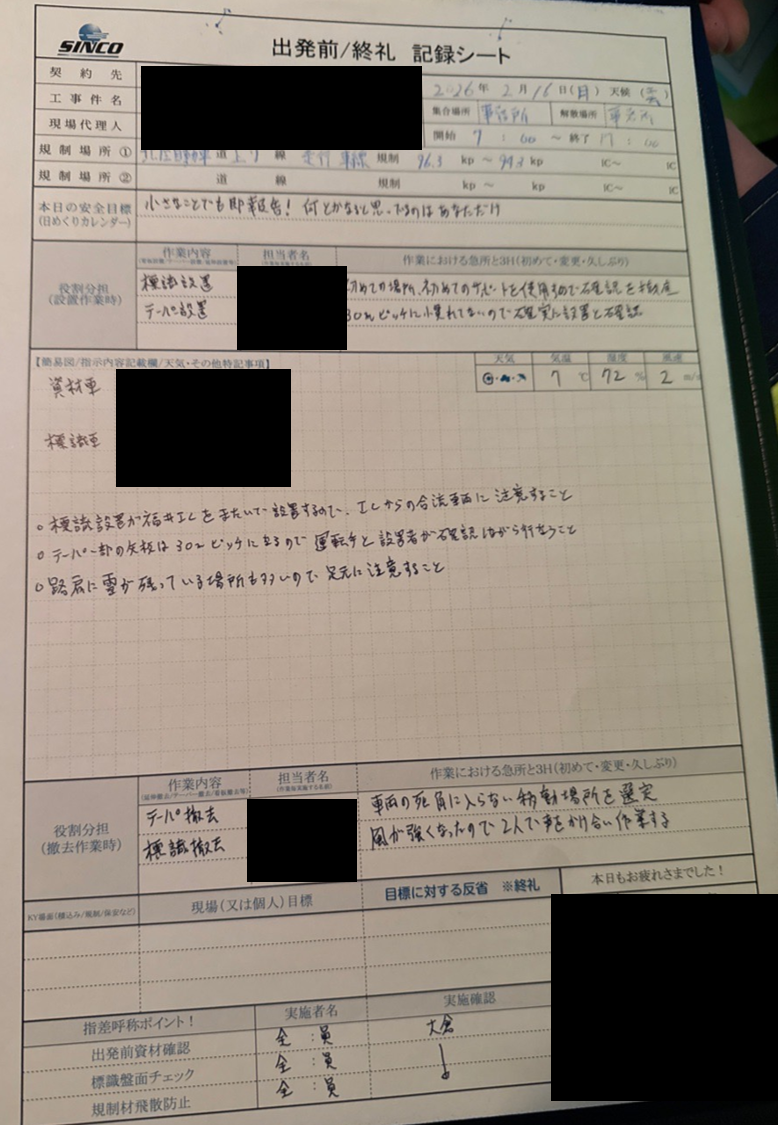 SINCO
出発前/終礼 記録シート
契約先
工事件名
現場代理人
2026年 2月 16日(月) 天候(雲)
集合場所 事務所 解散場所 事務所
開始 7 : 00 ~ 終了 17 : 00
規制場所① 道 上り 線 走行車線 規制 96.3 kp ~ 94.3 kp IC~ IC
規制場所② 道 線 規制 kp ~ kp IC~ IC
本日の安全目標
(日めくりカレンダー)
小さなことでも即報告! 何とかなると思ってるのはあなただけ
役割分担
(設置作業時)
作業内容 担当者名 作業における急所と3H(初めて・変更・久しぶり)
標識設置 初めての場所、初めてのサポートを使用するので確認を徹底
テーパ設置 30mピッチに慣れてないので確実に設置と確認
【簡易図/指示内容記載欄/天気・その他特記事項】
天気 気温 湿度 風速
7 ℃ 72 % 2 m/s
資材車
標識車
○標識設置が福井ICをまたいで設置するので、ICからの合流車両に注意すること
○テーパー部の矢板は30mピッチになるので運転手と設置者が確認しながら行なうこと
○路肩に雪が残っている場所も多いので足元に注意すること
役割分担
(撤去作業時)
作業内容 担当者名 作業における急所と3H(初めて・変更・久しぶり)
テーパ撤去 車両の死角に入らない移動場所を選定
標識撤去 風が強くなったので2人で声をかけ合い作業する
KY場面(積込み/規制/保安など) 現場(又は個人)目標 目標に対する反省 ※終礼 本日もお疲れさまでした!
指差呼称ポイント! 実施者名 実施確認
出発前資材確認 全:員 大倉
標識盤面チェック 全:員 ↓
規制材飛散防止 全:員